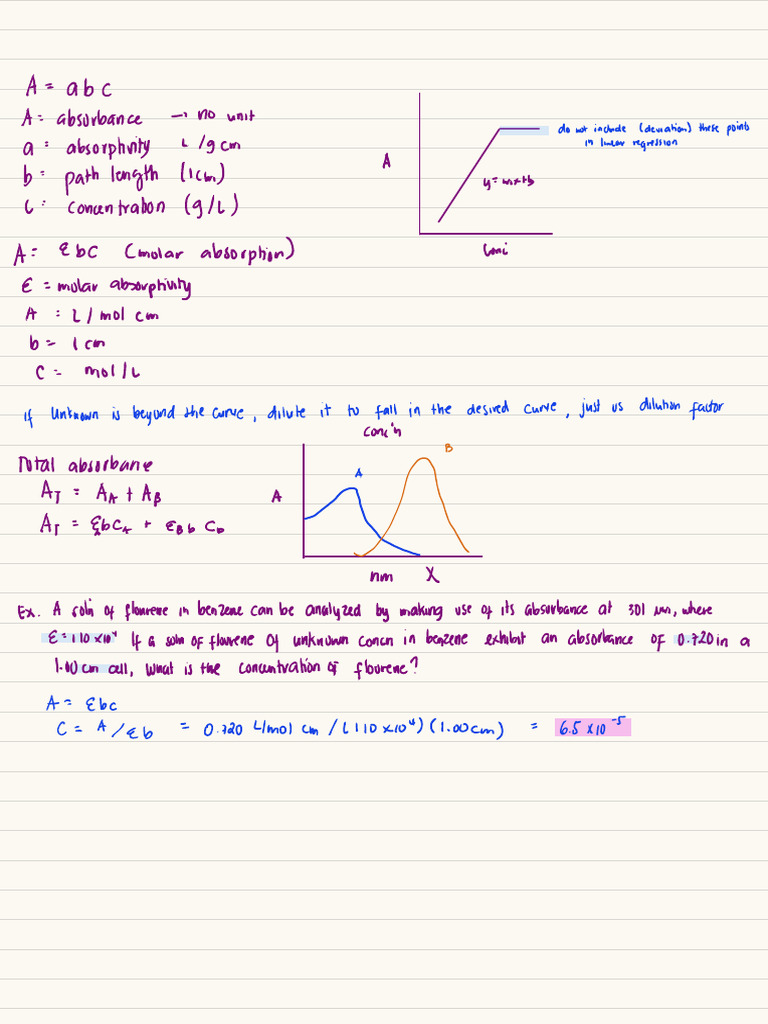 A = abc
A = absorbance → no unit
a = absorptivity L/g cm
b = path length (1cm)
c = concentration (g/L)
A
y = mx+b
do not include (deviation) these points
in linear regression
Conc
A = εbc (molar absorption)
ε = molar absorptivity
A = L/mol cm
b = 1 cm
C = mol/L
if unknown is beyond the curve, dilute it to fall in the desired curve, just us dilution factor
conc'n
Total absorbance
A_T = A_A + A_B
A_T = εbC_A + ε_B b C_b
A
A
B
nm λ
Ex. A soln of flourene in benzene can be analyzed by making use of its absorbance at 301 nm, where
ε = 1.10 x10⁴ If a soln of flourene of unknown concn in benzene exhibit an absorbance of 0.720 in a
1.00 cm cell, what is the concentration of flourene?
A = εbc
C = A/εb = 0.720 L/mol cm / (1.10 x10⁴)(1.00cm) = 6.5 x10⁻⁵